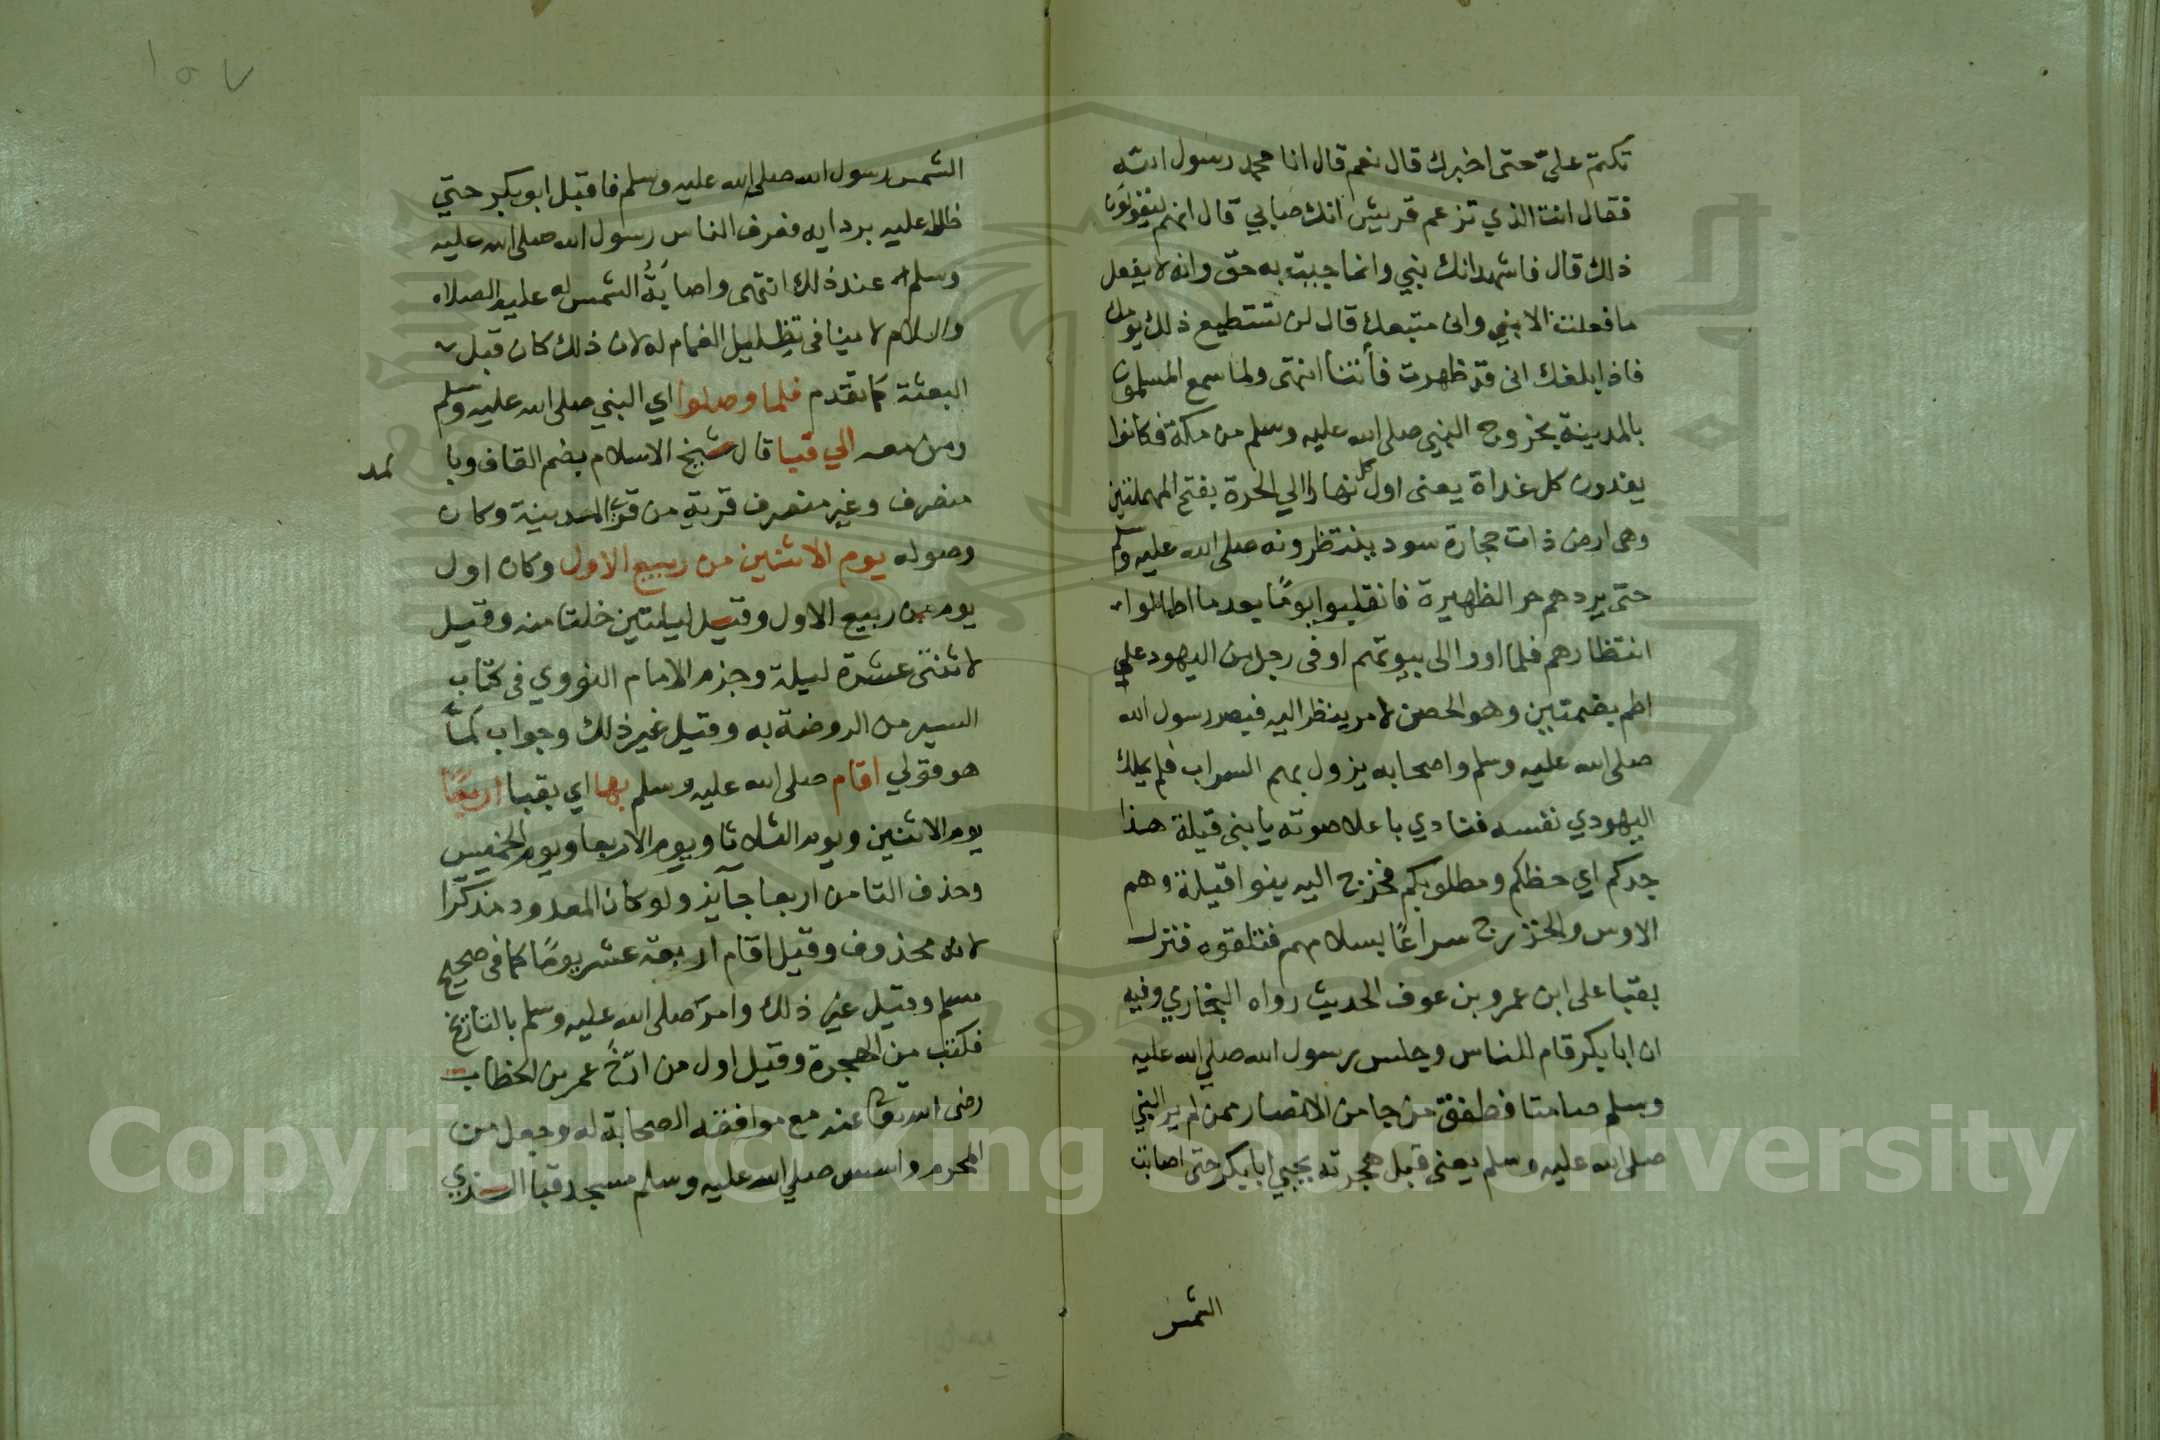 تكتم على حتى اخبرك قال نعم قال انا محمد رسول الله
فقال انت الذي تزعم قريش انك صابي قال انهم ليقولون
ذلك قال فاشهد انك نبي وانما جيت به حق وانه لا يفعل
ما فعلت الا نبي وانى متبعك قال لن تستطيع ذلك يومك
فاذا بلغك انى قد ظهرت فأتنا انتهى ولما سمع المسلمون
بالمدينة بخروج النبي صلى الله عليه وسلم من مكة فكانوا
يغدون كل غداة يعنى اول كل نهار الي الحرة بفتح المهملتين
وهى ارض ذات حجارة سود ينتظرونه صلى الله عليه وسلم
حتى يردهم حر الظهيرة فانقلبوا يومًا بعد ما اطالوا
انتظارهم فلما اووا الى بيوتهم اوفى رجل من اليهود علي
اطم بضمتين وهو الحصن لامر ينظر اليه فبصر رسول الله
صلى الله عليه وسلم واصحابه يزول بهم السراب فلم يملك
اليهودي نفسه فنادي باعلا صوته يا بنى قيلة هذا
جدكم اي حظكم ومطلوبكم فخرج اليه بنوا قيلة وهم
الاوس والخزرج سراعًا بسلامهم فتلقوه فنزل
بقبا على ابن عمرو بن عوف الحديث رواه البخاري وفيه
ان ابا بكر قام للناس وجلس رسول الله صلي الله عليه
وسلم صامتا فطفق من جا من الانصار ممن لم ير النبي
صلى الله عليه وسلم يعنى قبل هجرته يجيي ابا بكر حتى اصابت
الشمس
١٥٧
الشمس رسول الله صلى الله عليه وسلم فاقبل ابو بكر حتي
ظلل عليه بردايه فعرف الناس رسول الله صلى الله عليه
وسلم عند ذلك انتهى واصابَةُ الشمس له عليه الصلاه
والسلام لا ينافى تظليل الغمام له لان ذلك كان قبل
البعثة كما تقدم فلما وصلوا اي النبي صلى الله عليه وسلم
ومن معه الي قبا قال شيخ الاسلام بضم القاف وبا لمد
منصرف وغير منصرف قرية من قرى المدينة وكان
وصوله يوم الاثنين من ربيع الاول وكان اول
يوم من ربيع الاول وقيل لليلتين خلتا منه وقيل
لاثنتى عشرة ليلة وجزم الامام النووي فى كتاب
السير من الروضة به وقيل غير ذلك وجواب لمّا
هو قولي اقام صلى الله عليه وسلم بها اي بقبا اربعًا
يوم الاثنين ويوم الثلاثا ويوم الاربعا ويوم الخميس
وحذف التا من اربعا جآيز ولو كان المعدود مذكرا
لانه محذوف وقيل اقام اربعة عشر يومًا كما فى صحيح
مسلم وقيل غير ذلك وامر صلى الله عليه وسلم بالتاريخ
فكتب من الهجرة وقيل اول من ارّخ عمر بن الخطاب
رضى الله تعا عنه مع موافقة الصحابة له وجعل من
المحرم واسس صلي الله عليه وسلم مسجد قبا الذي
Copyright © King Saud University
1957